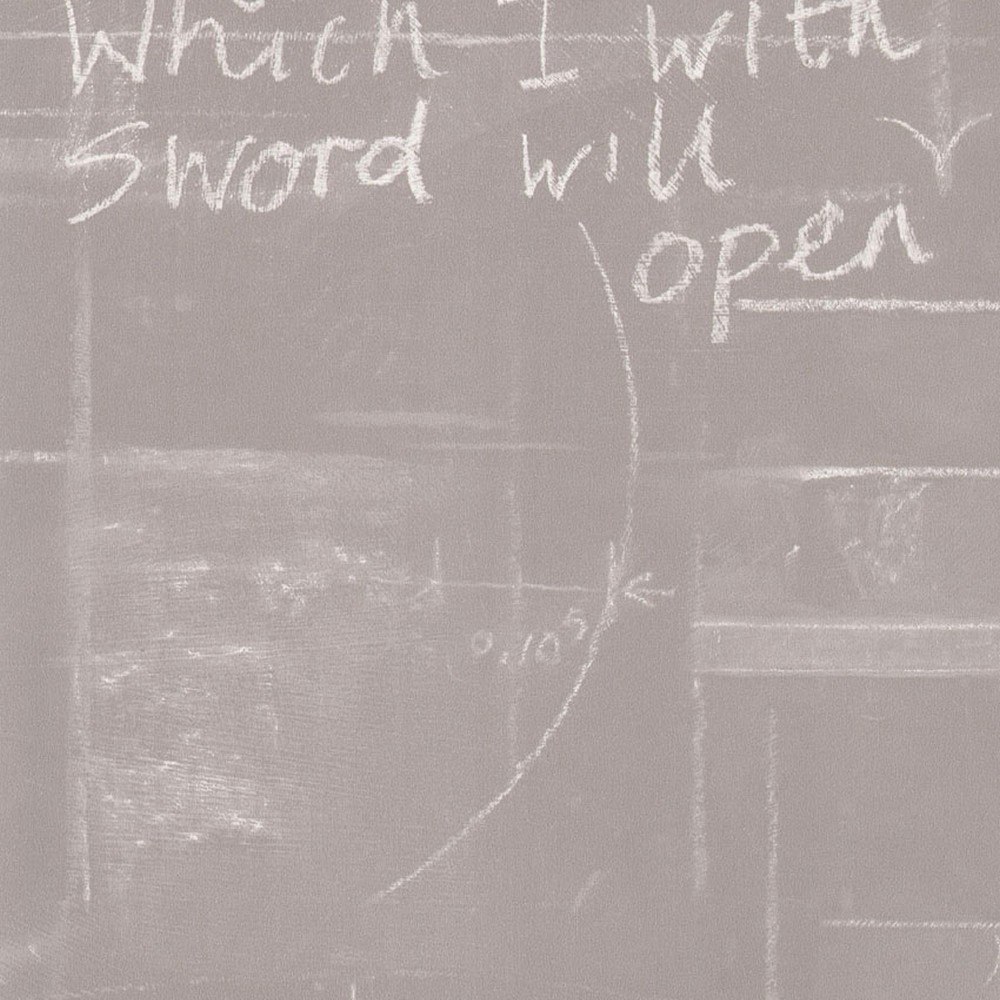 Which I with
sword will
open